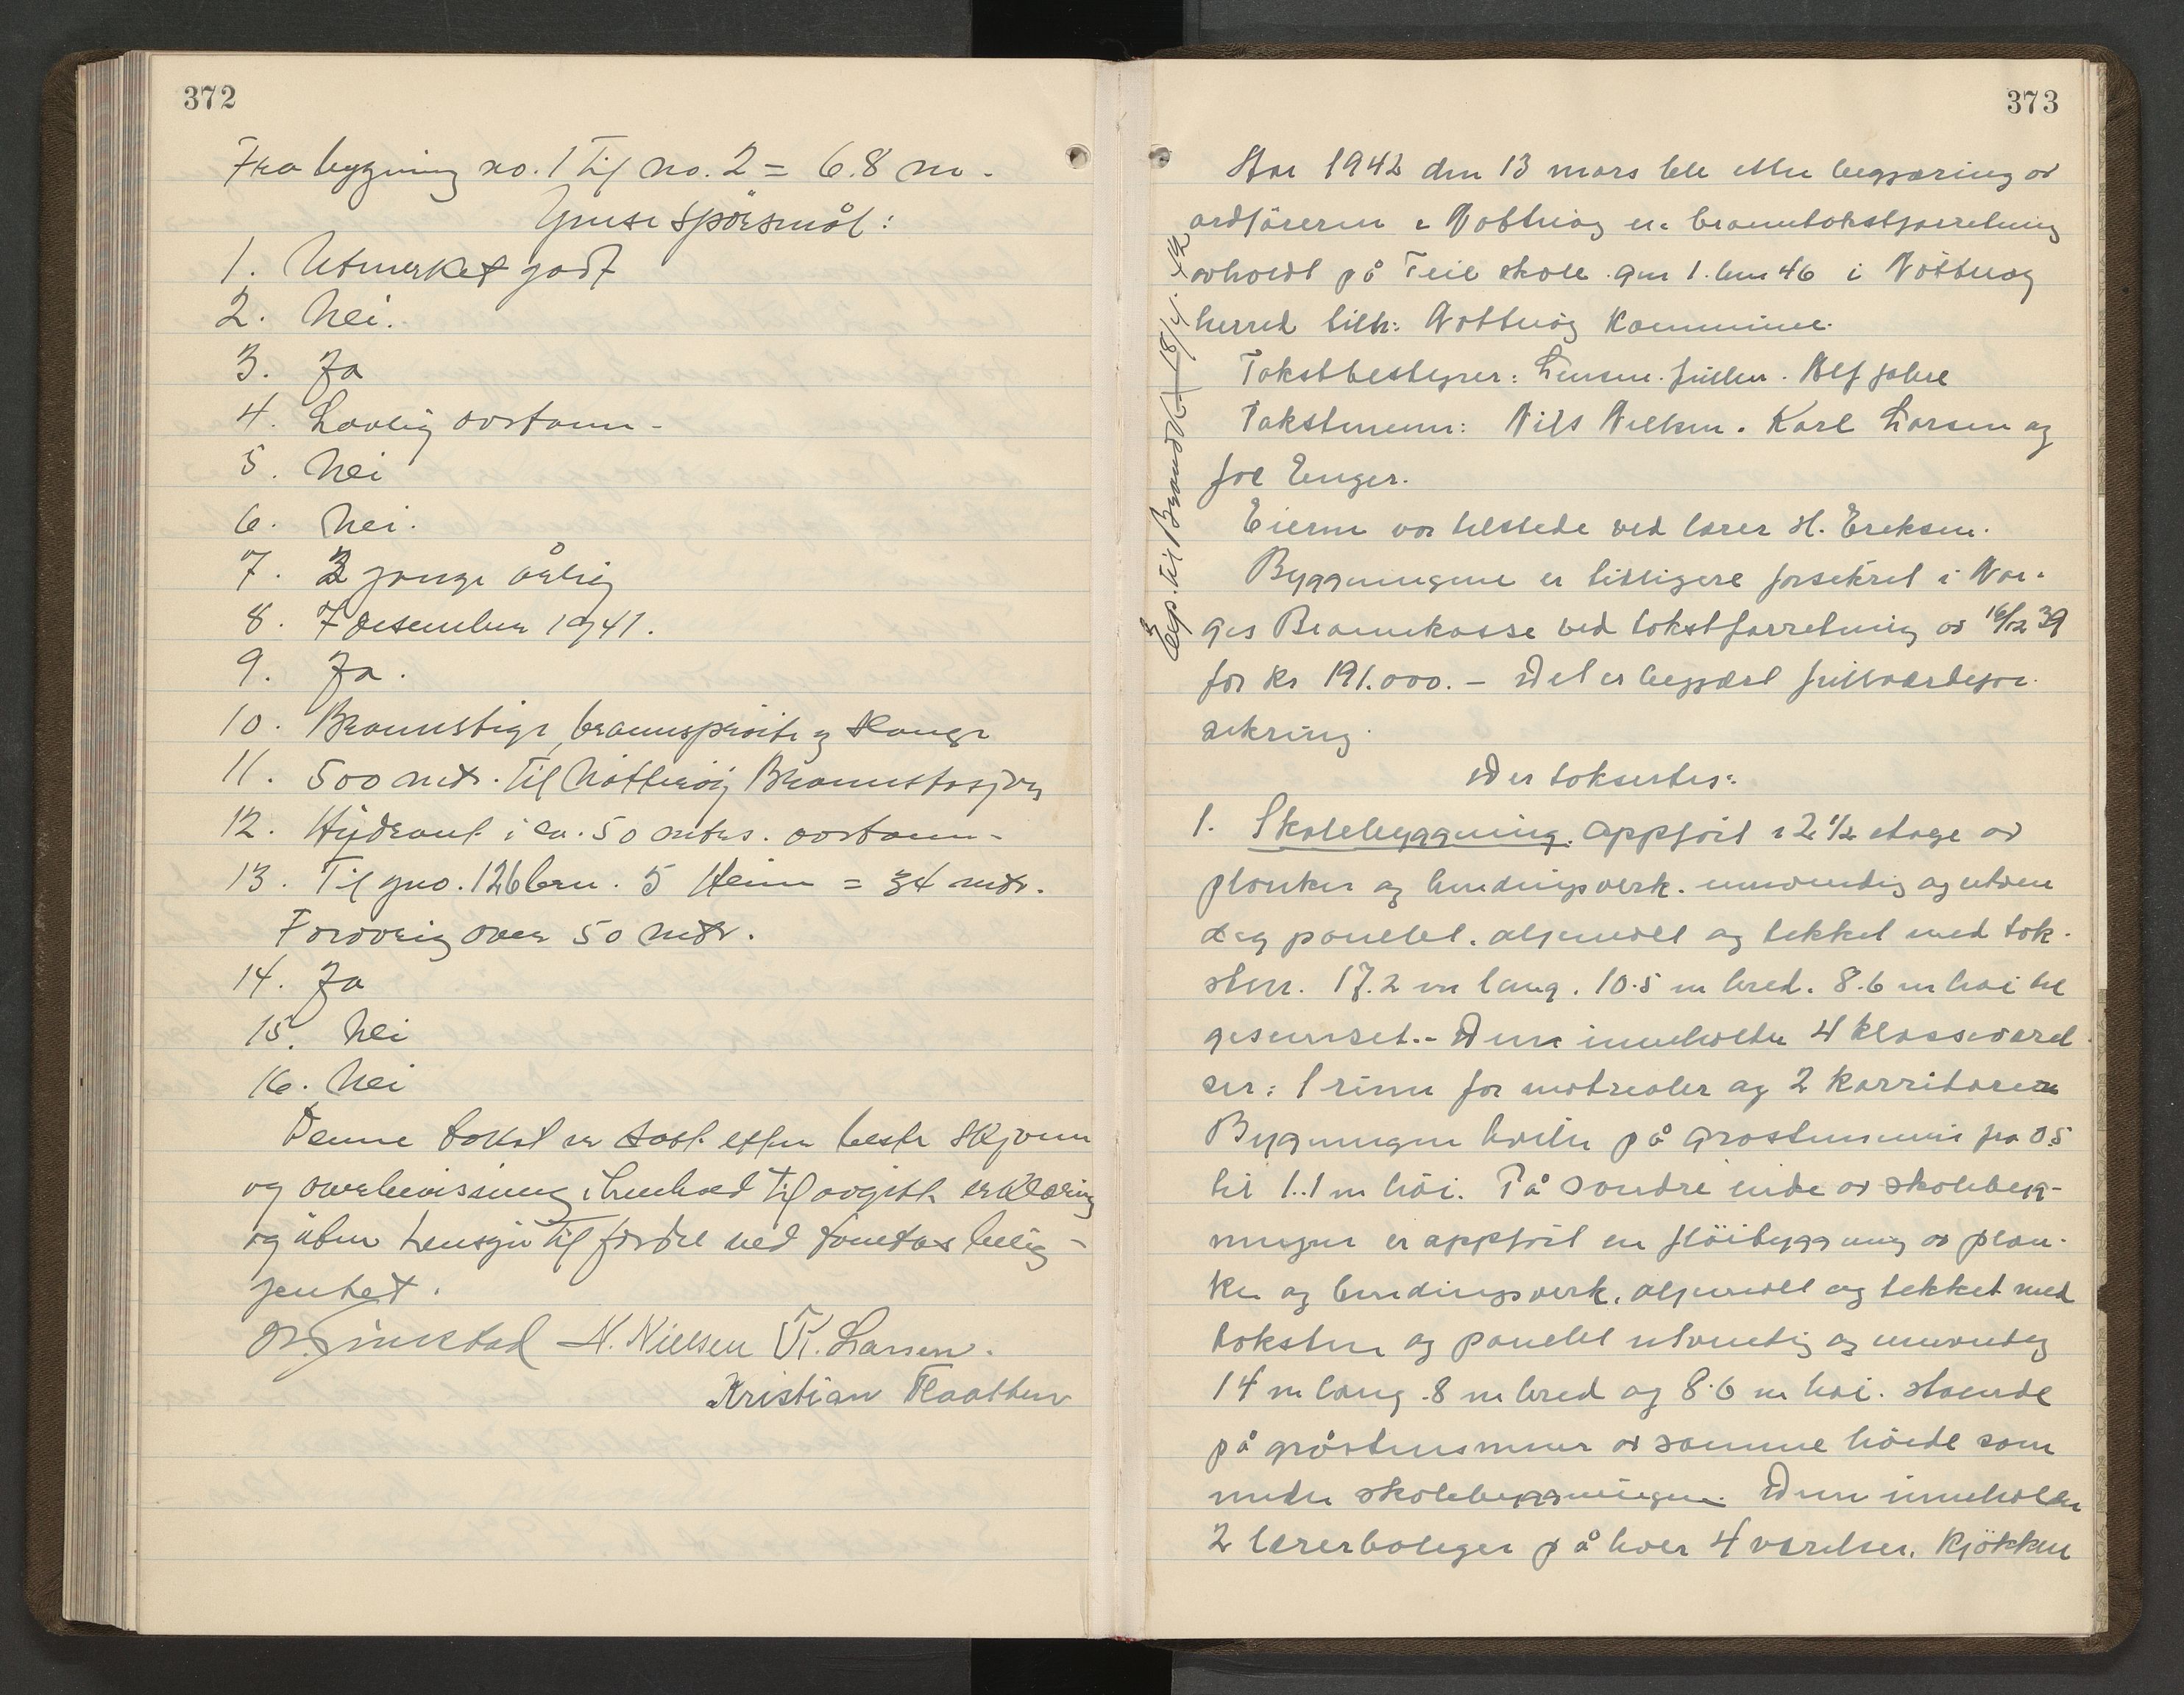 372
Fra bygning no. 1 til no. 2 = 6.8 m.
Gruse spörsmål:
1. Utmerket godt
2. Nei.
3. Ja
4. Lovlig avstann -
5. Nei
6. Nei.
7. 2 gange årlig
8. 7 desember 1941.
9. Ja.
10. Brannstige, brannspröite og slange
11. 500 mtr. til Nötteröy Brannstasjon
12. Hydrant i ca. 50 mtrs. avstann -
13. Til gno. 126 brn. 5 Heim = 34 mtr.
Forövrig over 50 mtr.
14. Ja
15. Nei
16. Nei
Denne takst er satt efter beste skjönn
og overbevisning i henhold til avgitt erklæring
og uten hensyn til fordel ved tomtens belig-
genhet.
N. Nielsen K. Larsen.
Kristian Flaatten
373
Aar 1942 den 13 mars ble etter begjæring av
ordföreren i Nötteröy en branntakstforretning
avholdt på Teie skole gnr 1. bnr 46 i Nötteröy
herred tilh: Nötteröy Kommune.
Takstbestyrer: Lensm. fullm. Alf Jahre
Takstmenn: Nils Nielsen. Karl Larsen og
Joe Enger.
Eieren var tilstede ved lærer H. Eriksen.
Bygningene er tidligere forsikret i Nor-
ges Brannkasse ved takstforretning av 16/12 39
for kr 191.000.- Det er begjært fullverdifor-
sikring.
Der taksertes:
1. Skolebyggning. Oppfört i 2 1/2 etage av
planker og bindingsverk. innvendig og utven
dig panelet. oljemalt og tekket med tak-
sten. 17.2 m lang. 10.5 m bred. 8.6 m höi til
gesimset.- Den inneholder 4 klasseværel
ser: 1 rum for matrealer og 2 korridorer
Bygningen hviler på gråstensmur fra 0.5
til 1.1 m höi. På söndre ende av skolebyg-
ningen er oppfört en flöibyggning av plan-
ker og bindingsverk, oljemalt og tekket med
taksten og panelet utvendig og innvendig
14 m lang. 8 m bred og 8.6 m höi. stående
på gråstensmur av samme höide som
under skolebyggningen. Den inneholder
2 lærerboliger på hver 4 værelser. Kjökken
Exp. til Brandk. 18/4. 42